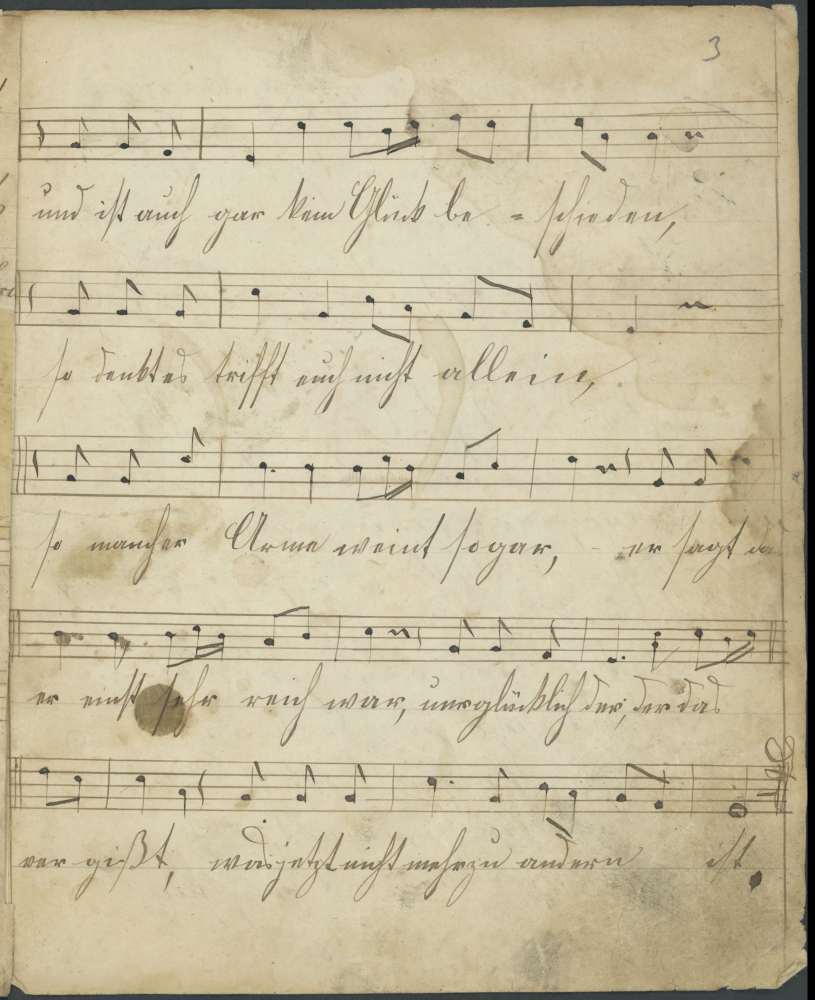 3
und ist auch gar kein Glück be = schieden,
so denkt es trifft euch nicht allein,
so mancher Arme weint sogar, - er sagt da
er einst sehr reich war, unglücklich der, der das
ver gißt, was jetzt nicht mehr zu ändern ist.